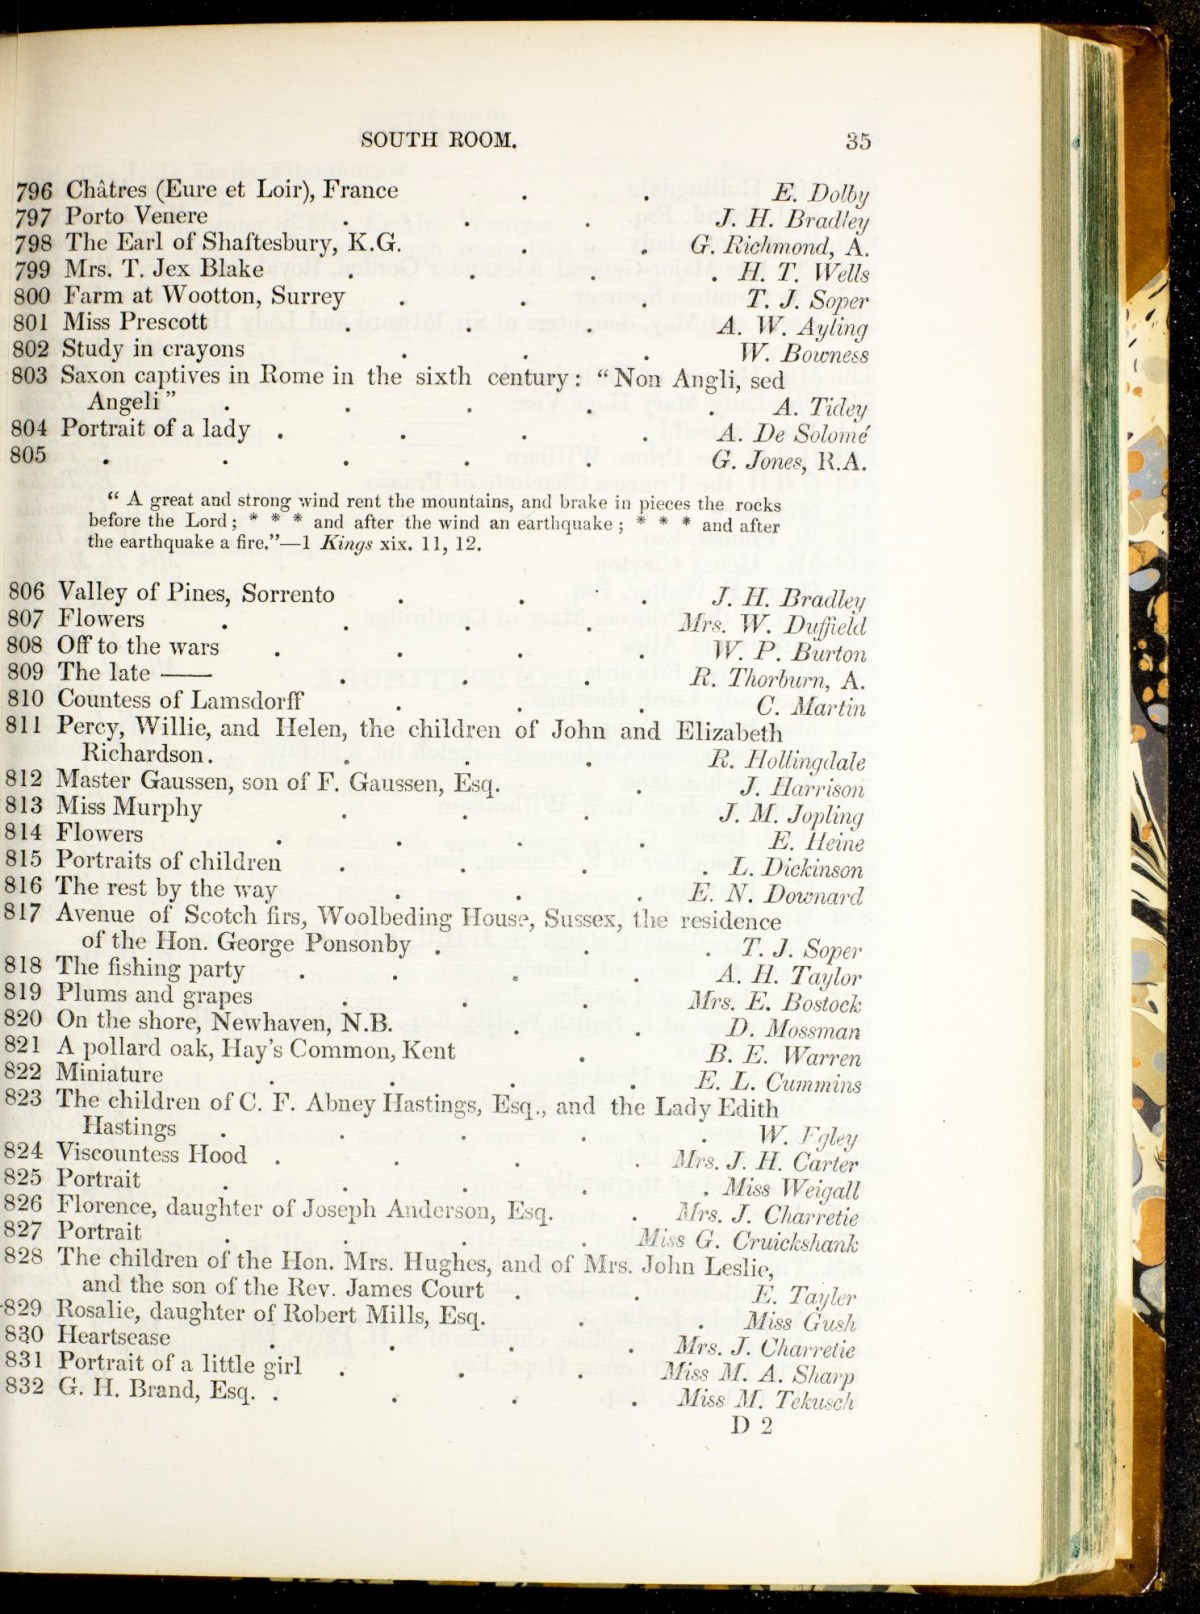 SOUTH ROOM. 35
796 Châtres (Eure et Loir), France . . E. Dolby
797 Porto Venere . . . J. H. Bradley
798 The Earl of Shaftesbury, K.G. . . G. Richmond, A.
799 Mrs. T. Jex Blake . . . . H. T. Wells
800 Farm at Wootton, Surrey . . . T. J. Soper
801 Miss Prescott . . . A. W. Ayling
802 Study in crayons . . . W. Bowness
803 Saxon captives in Rome in the sixth century: "Non Angli, sed
Angeli" . . . . . A. Tidey
804 Portrait of a lady . . . . A. De Solomé
805 . . . . . G. Jones, R.A.
" A great and strong wind rent the mountains, and brake in pieces the rocks
before the Lord; * * * and after the wind an earthquake; * * * and after
the earthquake a fire."—1 Kings xix. 11, 12.
806 Valley of Pines, Sorrento . . . J. H. Bradley
807 Flowers . . . . Mrs. W. Duffield
808 Off to the wars . . . . W. P. Burton
809 The late —— . . . R. Thorburn, A.
810 Countess of Lamsdorff . . . C. Martin
811 Percy, Willie, and Helen, the children of John and Elizabeth
Richardson. . . . R. Hollingdale
812 Master Gaussen, son of F. Gaussen, Esq. . J. Harrison
813 Miss Murphy . . . J. M. Jopling
814 Flowers . . . . E. Heine
815 Portraits of children . . . . L. Dickinson
816 The rest by the way . . . E. N. Downard
817 Avenue of Scotch firs, Woolbeding House, Sussex, the residence
of the Hon. George Ponsonby . . . T. J. Soper
818 The fishing party . . . . A. H. Taylor
819 Plums and grapes . . . Mrs. E. Bostock
820 On the shore, Newhaven, N.B. . . D. Mossman
821 A pollard oak, Hay's Common, Kent . B. E. Warren
822 Miniature . . . . E. L. Cummins
823 The children of C. F. Abney Hastings, Esq., and the Lady Edith
Hastings . . . . . W. Egley
824 Viscountess Hood . . . . Mrs. J. H. Carter
825 Portrait . . . . . Miss Weigall
826 Florence, daughter of Joseph Anderson, Esq. . Mrs. J. Charretie
827 Portrait . . . . Miss G. Cruickshank
828 The children of the Hon. Mrs. Hughes, and of Mrs. John Leslie,
and the son of the Rev. James Court . . E. Tayler
829 Rosalie, daughter of Robert Mills, Esq. . . Miss Gush
830 Heartsease . . . . Mrs. J. Charretie
831 Portrait of a little girl . . . Miss M. A. Sharp
832 G. H. Brand, Esq. . . . . Miss M. Tekusch
D 2